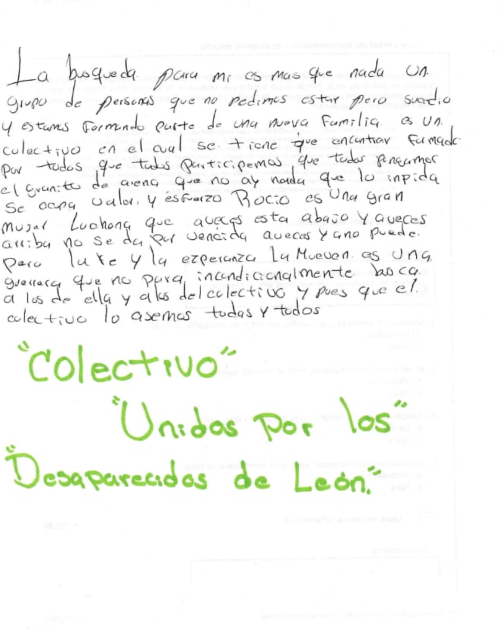 La busqueda para mi es mas que nada un
grupo de personas que no pedimos estar pero sucedio
y estamos formando parte de una nueva Familia es un
colectivo en el cual se tiene que encontrar formado
por todos que todos participemos, que todos pongamos
el granito de arena que no ay nada que lo inpida
Se ocupa valor, y esfuerzo Rocio es una gran
mujer Luchona que aveces esta abajo y aveces
arriba no se da por vencida aveces ya no puede.
pero la fe y la ezperanza La Mueven. es una
guerrera que no para, incondicionalmente busca
a los de ella y a los del colectivo y pues que el.
colectivo lo asemos todas y todos
"Colectivo"
"Unidos por los"
"Desaparecidos de León."